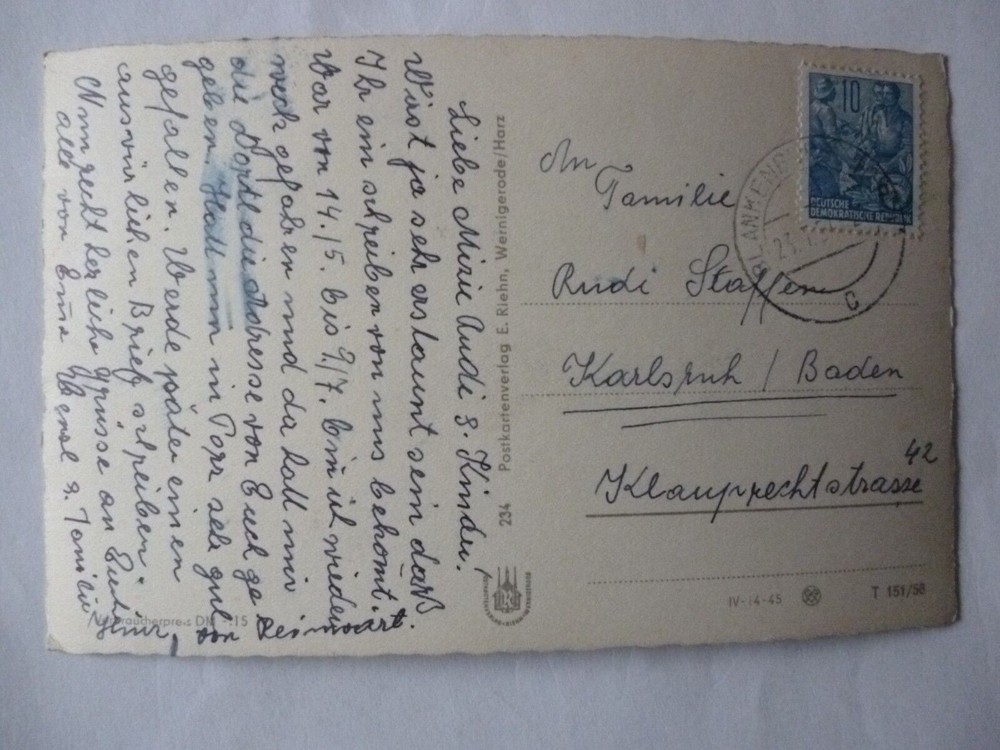 Liebe Mirie Rudi s. Kinder!
Wirst ja sehr erstaunt sein daß
Ihr ein schreiben von uns bekomt.
War von 14./5. bis 9/7. bin ich wieder
weck gefahren und da hatt mir
die Dortl die Adresse von Euch ge
geben. Hatt mir in Porz seh gut
gefallen. Werde später einen
ausführlichen Brief schreiben.
Nun recht herliche Grüsse an Euch
alle von Erna
s. Familie
von Reinwart.
Verbraucherpreis DM -.15
234 Postkartenverlag E. Riehn, Wernigerode/Harz
10
DEUTSCHE
DEMOKRATISCHE REPUBLIK
BLANKENB
23.
c
An
Familie
Rudi Staffen
Karlsruh / Baden
42
Klauprechtstrasse
IV-14-45
T 151/58